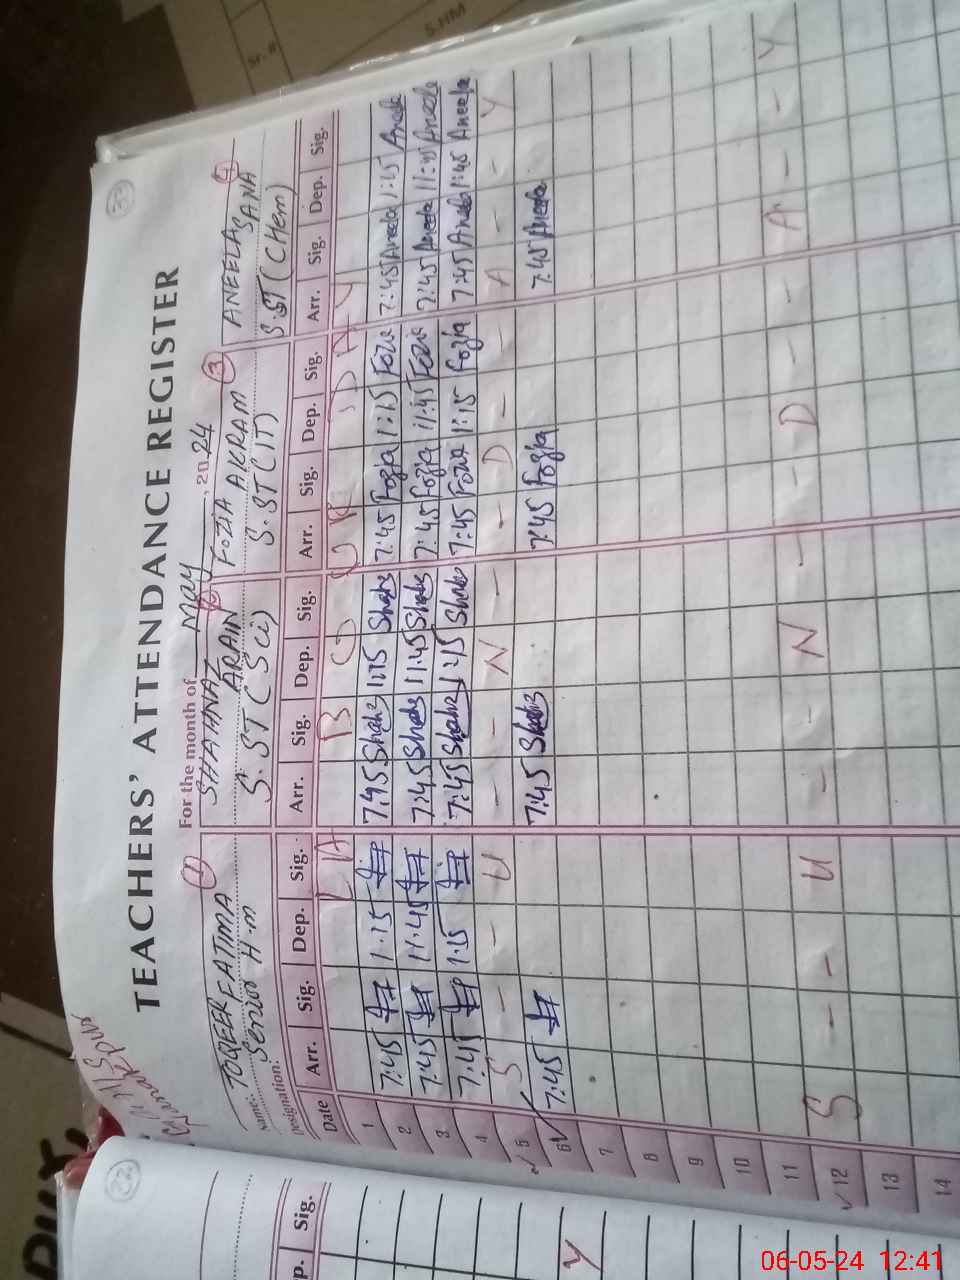 Sr. #
S.HM
33
TEACHERS' ATTENDANCE REGISTER
For the month of May, 2024
Name: TOQEER FATIMA 1 SHAHNAZ ARAIN 2 FOZIA AKRAM 3 ANEELA SANA 4
Designation: Senior H.m S.ST (Sci) S.ST (IT) S.ST (CHem)
Date Arr. Sig. Dep. Sig. Arr. Sig. Dep. Sig. Arr. Sig. Dep. Sig. Arr. Sig. Dep. Sig.
1 LABOUR DAY
2 7:45 1:15 7:45 Shahz 1:15 Shahz 7:45 Fozia 1:15 Fozia 7:45 Aneela 1:15 Aneela
3 7:45 11:45 7:45 Shahz 11:45 Shahz 7:45 Fozia 11:45 Fozia 7:45 Aneela 11:45 Aneela
4 7:45 1:15 7:45 Shahz 1:15 Shahz 7:45 Fozia 1:15 Fozia 7:45 Aneela 1:45 Aneela
5 S - - U - - N - - D - - A - - Y
6 7:45 7:45 Shahz 7:45 Fozia 7:45 Aneela
7
8
9
10
11
12 S - - U - - N - - D - - A - - Y
13
14
32
p. Sig.
Y
06-05-24 12:41